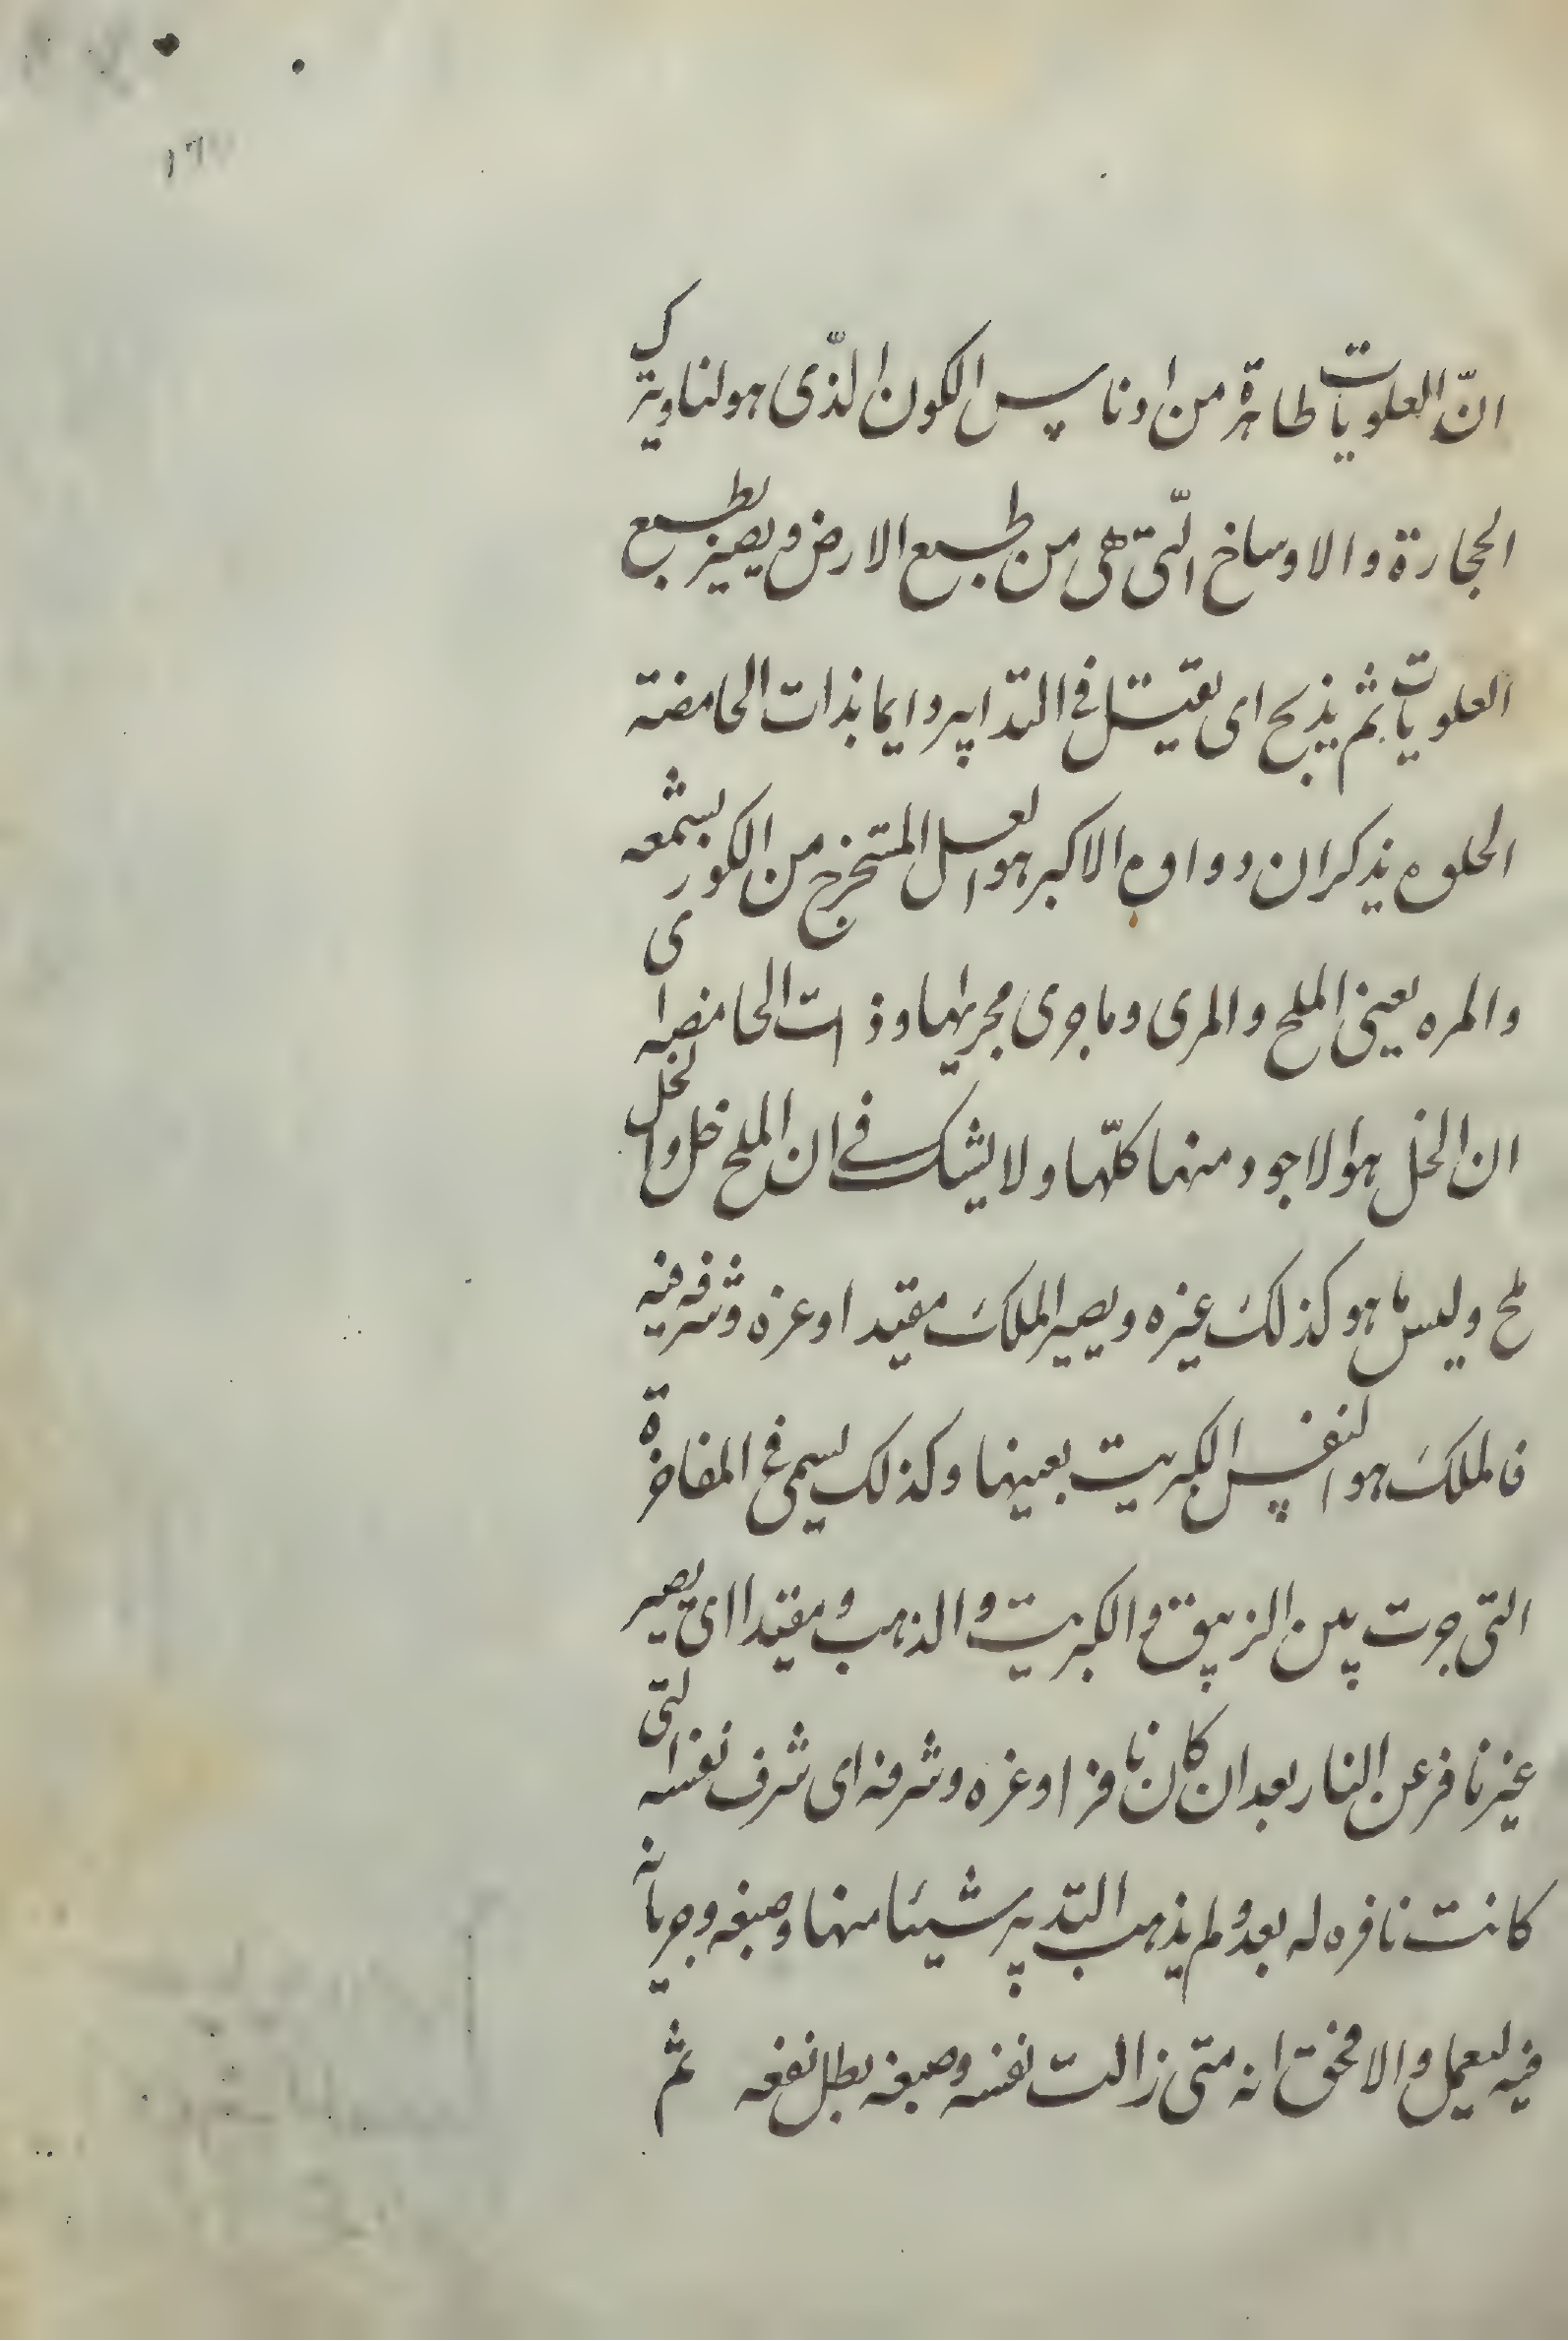 انّ العلويات طاهرة من ادناس الكون الذّى هو لنا وتركية
الحجارة والاوساخ الّتى هى من طبع الارض ويصير بطبع
العلويات ثم يذبح اى يقتل فى التدابير وايما بذات الحامضة
الحلوه يذكر ان دواوه الاكبر هو العسل المستخرج من الكور بشمعه
والمره يعنى الملح والمرى وما جرى مجريهما وذات الحامضه اى
ان الخل هو الاجود منها كلّها ولا يشك فى ان الملح خل والخل
ملح وليس ما هو كذلك غيره ويصير الملك مقيدا وعزه وشرفه فيه
فالملك هو النفس الكبريت بعينها وكذلك يسمى فى المفاخرة
التى جرت بين الزيبق والكبريت والذهب ومقيدا اى يصير
غير نافر عن النار بعد ان كان نافرا وعزه وشرفه اى شرف نفسه التى
كانت نافره له بعد ولم يذهب التدبير شيئا منها وصبغه وجريانه
فيه ليعمل والا فحق انه متى زالت نفسه وصبغه بطل نفعه ثم